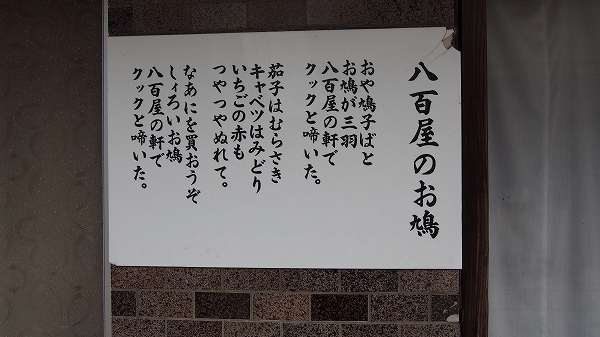 八百屋のお鳩
おや鳩子ばと
お鳩が三羽
八百屋の軒で
クックと啼いた。
茄子はむらさき
キャベツはみどり
いちごの赤も
つやつやぬれて。
なあにを買おうぞ
しょろいお鳩
八百屋の軒で
クックと啼いた。